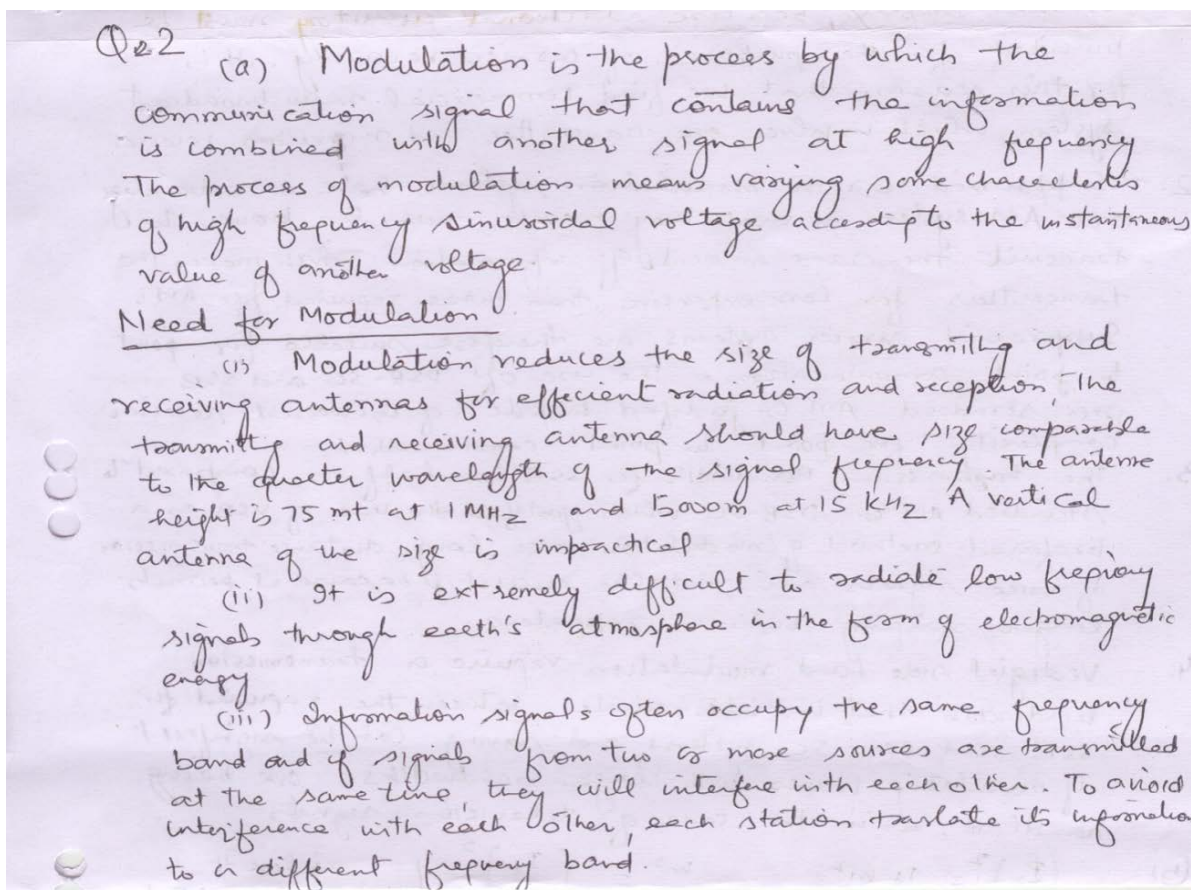 Qe2 (a) Modulation is the process by which the
communication signal that contains the information
is combined with another signal at high frequency
The process of modulation means varying some
of high frequency sinusoidal voltage to the instantaneous
value of another voltage
Need for Modulation
(i) Modulation reduces the size of transmitting and
receiving antennas for effecient radiation and reception, the
transmitting and receiving antenna should have size comparable
to the quarter wavelength of the signal frequency. The antenne
height is 75 mt at 1 MHz and 5000m at 15 kHz A vertical
antenna of the size is impractical
(ii) It is extremely difficult to radiate low frequency
signals through earth's atmosphere in the form of electromagnetic
energy
(iii) Information signals often occupy the same frequency
band and if signals from two or more sources are transmitted
at the same time, they will interfere with each other. To avoid
interference with each other, each station its information
to a different frequency band.